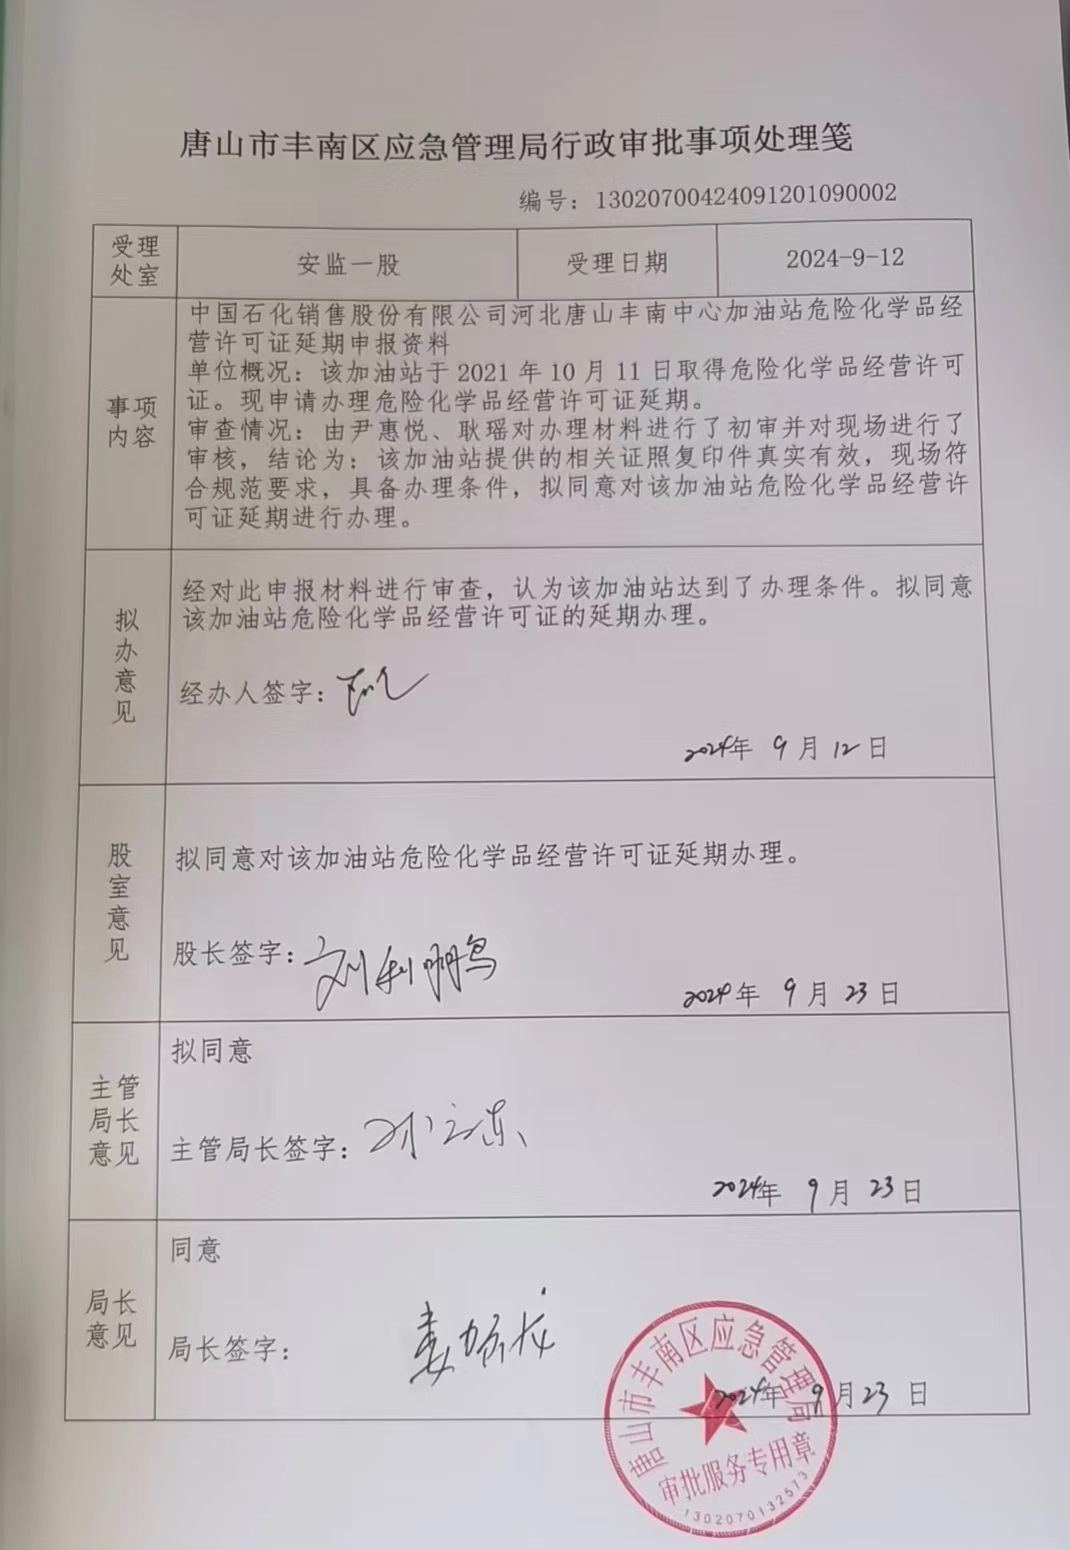 唐山市丰南区应急管理局行政审批事项处理笺
编号：13020700424091201090002
受理
处室
安监一股
受理日期
2024-9-12
事项
内容
中国石化销售股份有限公司河北唐山丰南中心加油站危险化学品经
营许可证延期申报资料
单位概况：该加油站于 2021 年 10 月 11 日取得危险化学品经营许可
证。现申请办理危险化学品经营许可证延期。
审查情况：由尹惠悦、耿瑶对办理材料进行了初审并对现场进行了
审核，结论为：该加油站提供的相关证照复印件真实有效，现场符
合规范要求，具备办理条件，拟同意对该加油站危险化学品经营许
可证延期进行办理。
拟
办
意
见
经对此申报材料进行审查，认为该加油站达到了办理条件。拟同意
该加油站危险化学品经营许可证的延期办理。
经办人签字：
2024年 9月 12日
股
室
意
见
拟同意对该加油站危险化学品经营许可证延期办理。
股长签字：刘利鹏
2024年 9月 23日
主管
局长
意见
拟同意
主管局长签字：
2024年 9月 23日
局长
意见
同意
局长签字：
2024年 9月23日
唐山市丰南区应急管理局
审批服务专用章
1302070132513